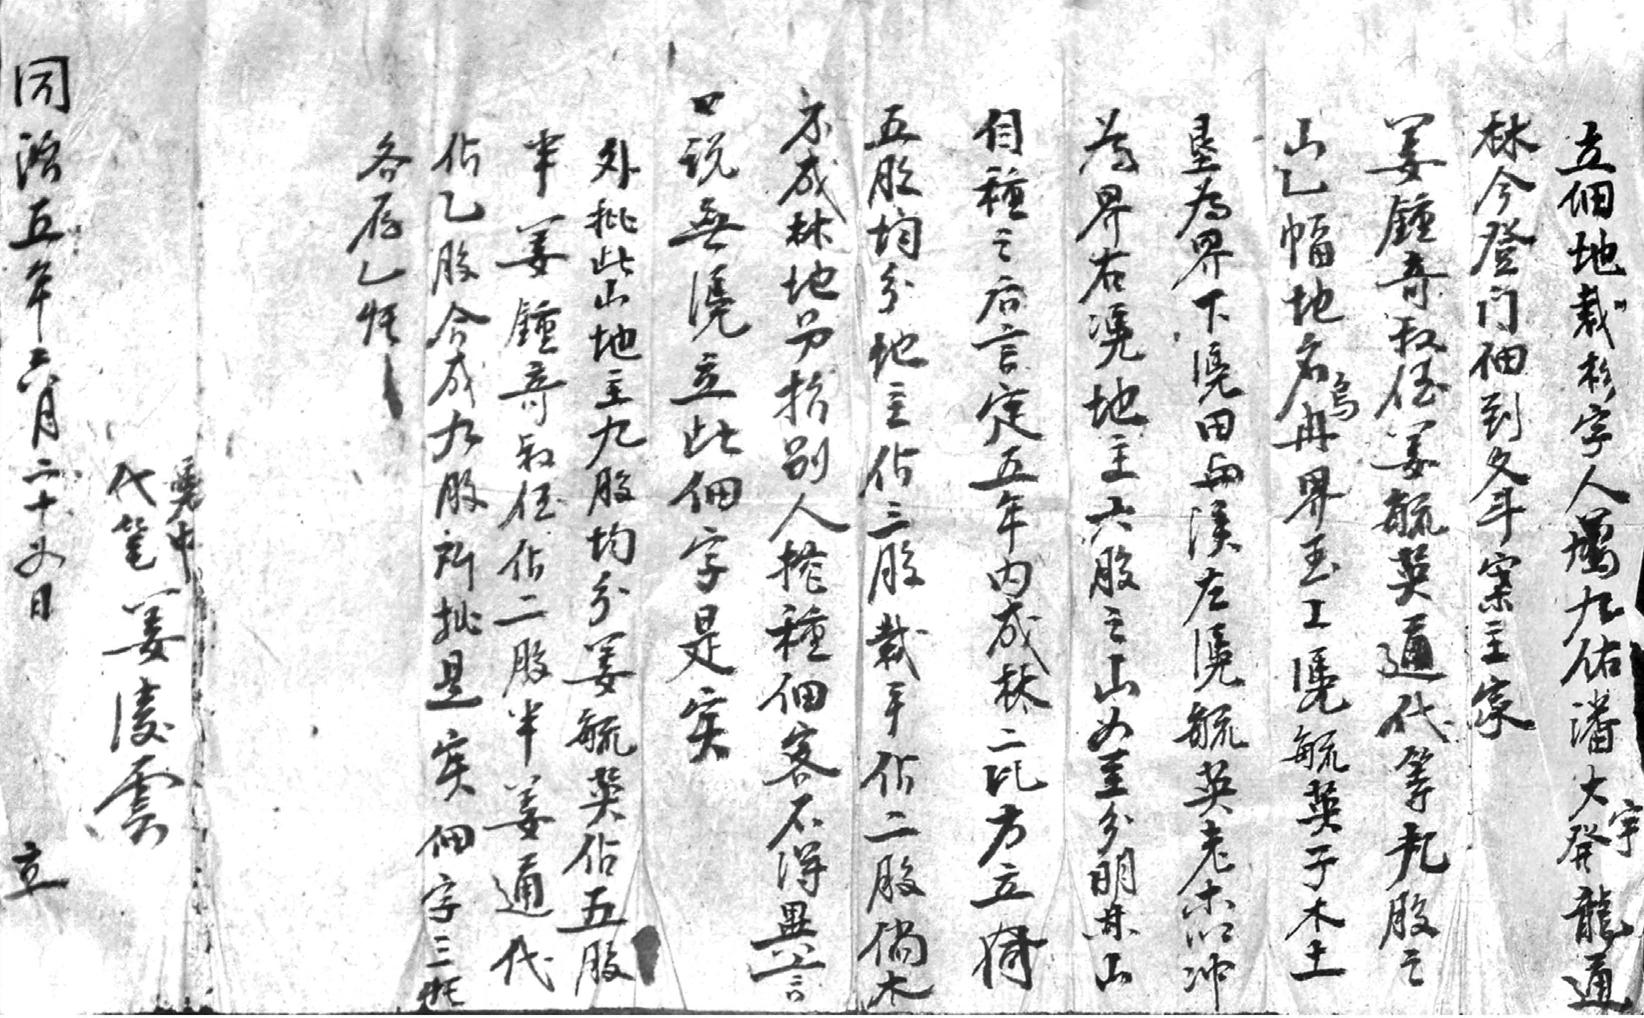 立佃地栽杉字人龍九佑潘大發龍通宇
林今登门佃到久斗寨主家
姜鍾奇叔侄姜毓英通代等九股之
山乙幅地名烏冉界至上憑毓英子木土
垦為界下憑田与溪左憑毓英老木以冲
為界右憑地主六股之山四至分明其山
自種之后言定五年内成林二比方立
五股均分地主佔三股栽手佔二股倘木
不成林地另招別人挖種佃客不得異言
口說無憑立此佃字是寔
外批此山地主九股均分姜毓英佔五股
半姜鍾奇叔侄佔二股半姜通代
佔乙股合成九股所批是寔佃字三紙
各存乙紙
憑中
代筆姜凌雲
同治五年六月二十四日 立